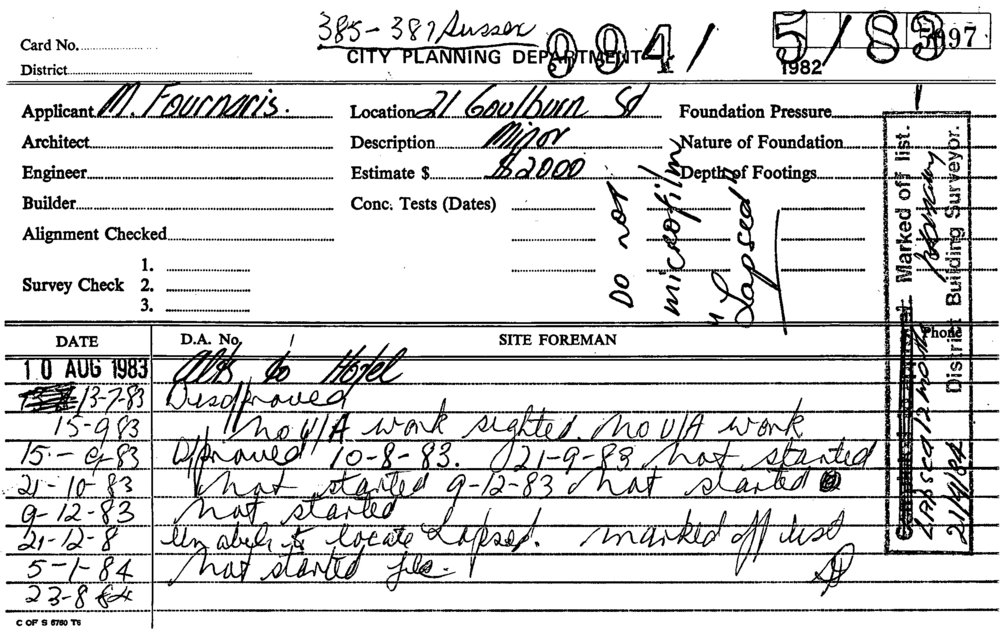 385-387 Sussex
Card No.
CITY PLANNING DEPARTMENT
994/ 5/83
5997
1982
District
Applicant M. Fournaris.
Location 21 Goulburn St
Foundation Pressure
Architect
Description Minor
Nature of Foundation
Engineer
Estimate $ $2000
Depth of Footings
Builder
Conc. Tests (Dates)
Alignment Checked
Survey Check
1.
2.
3.
Do not
microfilm
"Lapsed"
Marked off list.
Lapsed 12 months
District Building Surveyor.
21/9/84
DATE
D.A. No.
SITE FOREMAN
Phone
10 AUG 1983 Alts to Hotel
13-7-83 Disapproved
15-9-83 No U/A work sighted. No U/A work
15-9-83 Approved 10-8-83. 21-9-83 Not started
21-10-83 Not started 9-12-83 Not started
9-12-83 Not started
21-12-8 Unable to locate Lapsed. marked off list
5-1-84 Not started
23-8-84
C OF S 6760 T6